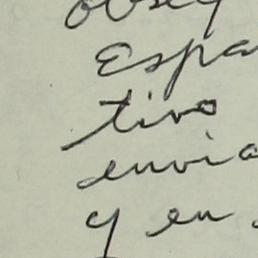 obseq
Espa
tivo
envia
y en